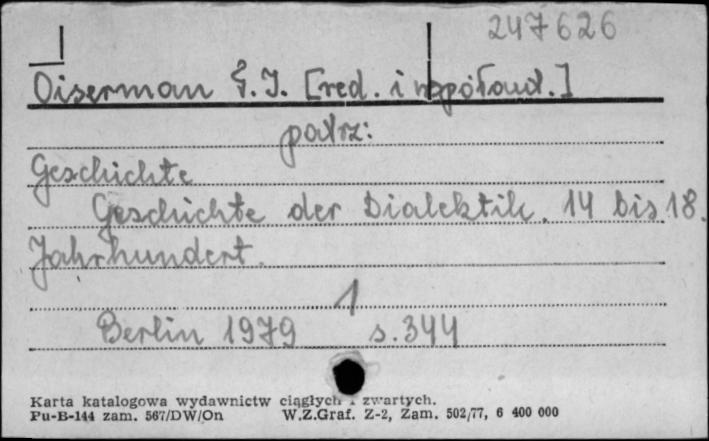 247626
Oiserman T.I. [red. i współaut.]
patrz:
Geschichte
Geschichte der Dialektik. 14 bis 18.
Jahrhundert.
1
Berlin 1979 s. 344
Karta katalogowa wydawnictw ciągłych i zwartych.
Pu-B-144 zam. 567/DW/On W.Z.Graf. Z-2, Zam. 502/77, 6 400 000